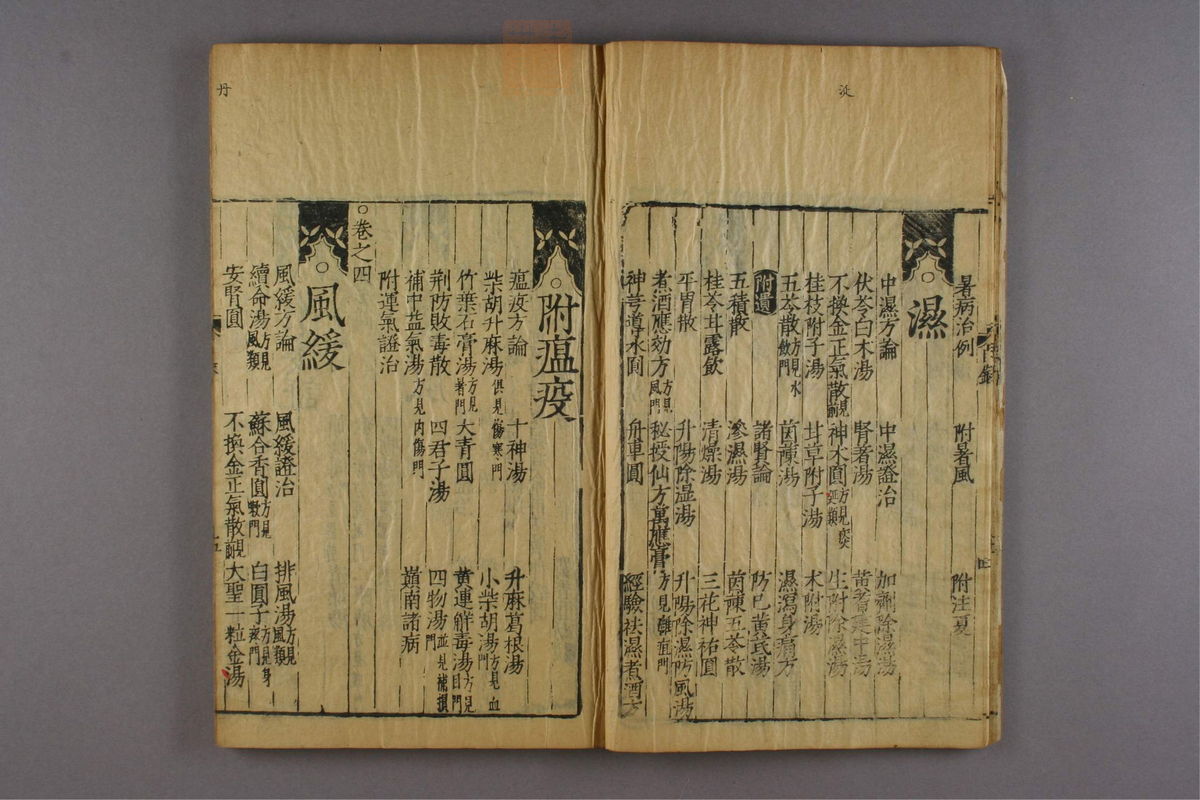 㳂
暑病治例 附暑風 附注夏
濕
中濕方論 中濕證治 加劑除濕湯
伏苓白朮湯 腎著湯 黃耆建中湯
不換金正氣散見前 神朮圓方見 生附除濕湯
桂枝附子湯 甘草附子湯 朮附湯
五苓散方見水飲門 茵蔯湯 濕瀉身痛方
附遺 諸賢論 防已黃茋湯
五積散 滲濕湯 茵蔯五苓散
桂苓甘露飲 清燥湯 三花神祐圓
平胃散 升陽除湿湯 升陽除濕防風湯
煮酒應効方方見風門 秘授仙方萬應膏方見雜
神芎導水圓 舟車圓 經驗祛濕煮酒方
丹
附瘟疫
瘟疫方論 十神湯 升麻葛根湯
柴胡升麻湯俱見傷寒門 小柴胡湯方見血門
竹葉石膏湯方見暑門 大青圓 黃連觧毒湯方見目門
荆防敗毒散 四君子湯 四物湯並見補損門
補中益氣湯方見內傷門 嶺南諸病
附運氣證治
○卷之四
風緩
風緩方論 風緩證治 排風湯方見風類
續命湯方見風類 蘇合香圓方見氣門 白圓子方見身
安腎圓 不換金正氣散見前 大聖一粒金湯